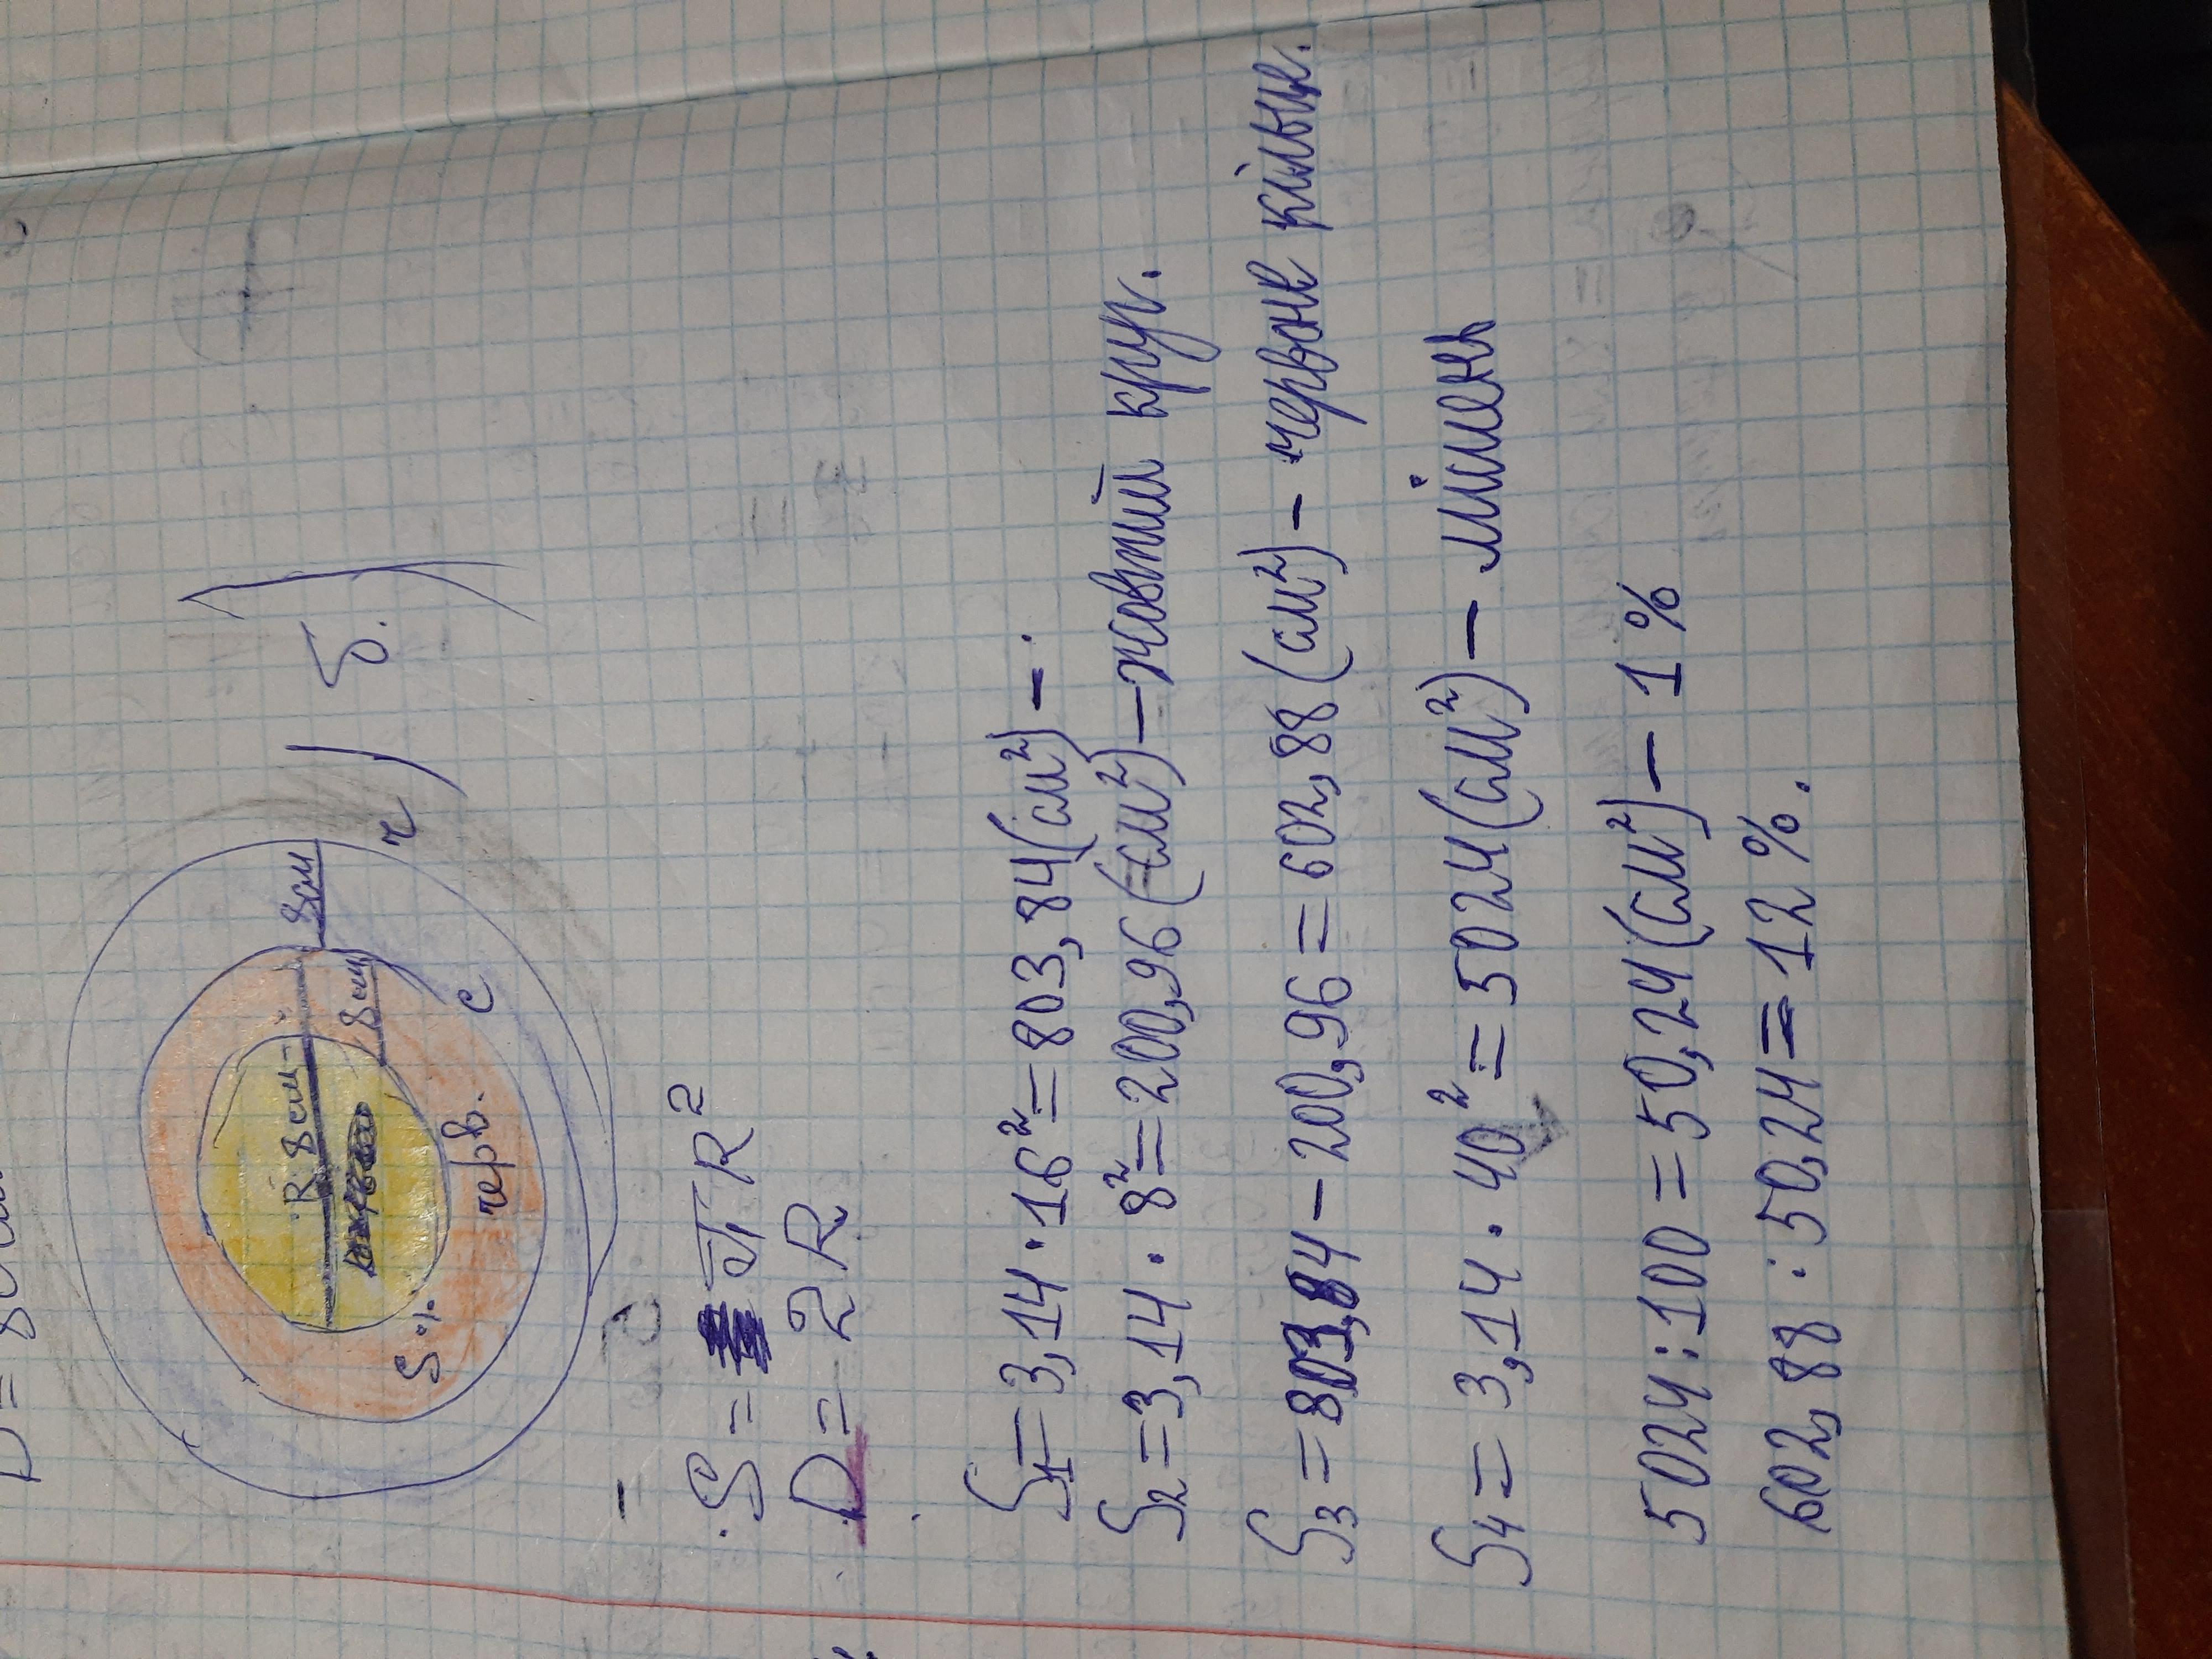 D = 80см
R 8 см
8см
8см
S %
черв.
с
ч
б.
S = πR²
D = 2R
S₁ = 3,14 · 16² = 803,84 (см²) –.
S₂ = 3,14 · 8² = 200,96 (см²) – жовтий круг.
S₃ = 803,84 – 200,96 = 602,88 (см²) – червоне кільце.
S₄ = 3,14 · 40² = 5024 (см²) – мішень
5024 : 100 = 50,24 (см²) – 1 %
602,88 : 50,24 = 12 %.